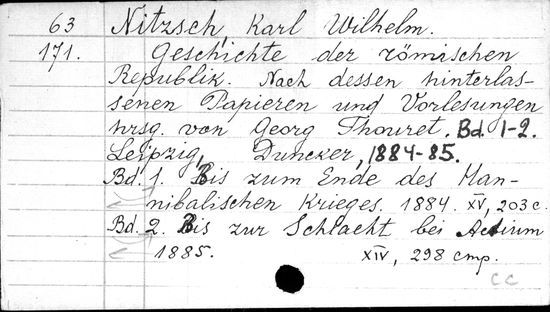 63 Nitzsch, Karl Wilhelm.
171. Geschichte der römischen
Republik. Nach dessen hinterlas-
senen Papieren und Vorlesungen
hrsg. von Georg Thouret. Bd. 1-2.
Leipzig, Duncker, 1884-85.
Bd. 1. Bis zum Ende des Han-
nibalischen Krieges. 1884. XV, 203 c.
Bd. 2. Bis zur Schlacht bei Actium
1885. XIV, 298 cmp.
CC